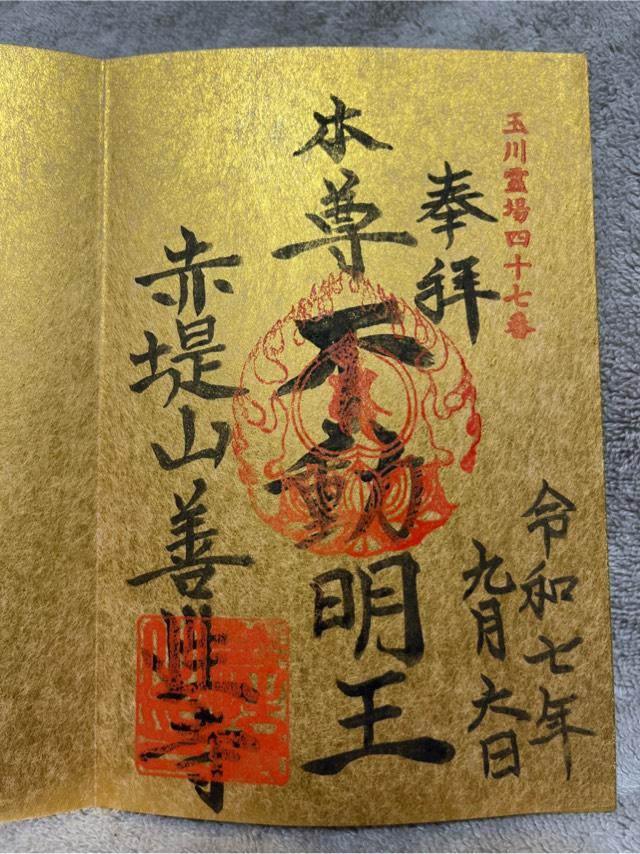 玉川霊場四十七番
奉拝
令和七年
九月六日
本尊
不動明王
赤堤山善性寺